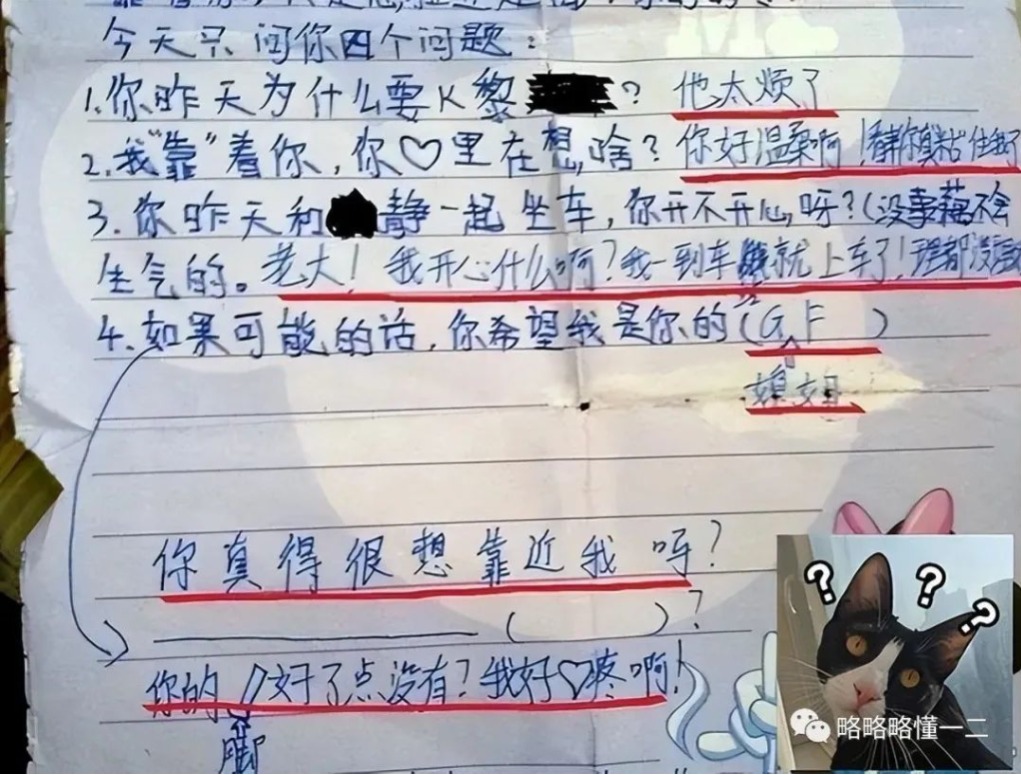 今天只问你四个问题：
1.你昨天为什么要K黎？他太烦了
2.我"靠"着你，你♡里在想啥？你好温柔啊！
3.你昨天和静一起坐车，你开不开心呀？(没事藕不会
生气的。老大！我开心什么啊？我一到车就上车了！理都没
4.如果可能的话，你希望我是你的(G.F )
媳妇
你真得很想靠近我吗？
( )?
你的好了点没有？我好♡疼啊！
脚
? ? ?
略略略懂一二